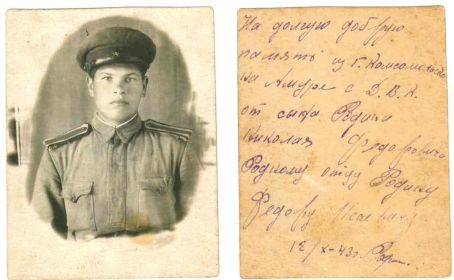 На долгую добрую
память из г. Комсомольска
На Амуре с Д.В.К.
от сына Родина
Николая Федоровича
Родному отцу Родину
Федору
12/X-43г.